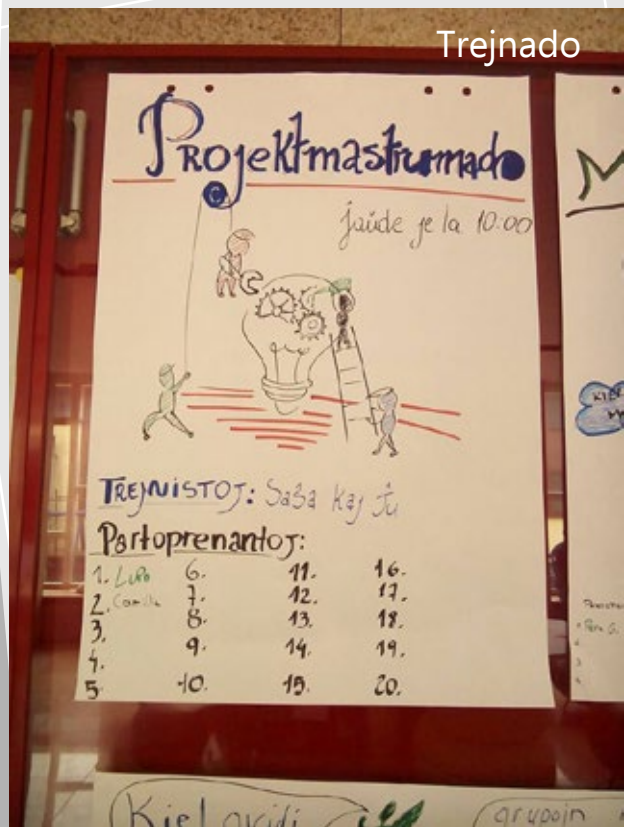 Trejnado
Projektmastrumado
ĵaŭde je la 10:00
C
TREJNISTOJ: Saŝa kaj
Partoprenantoj:
1. Lupo
2. Camille
3.
4.
5.
6.
7.
8.
9.
10.
11.
12.
13.
14.
15.
16.
17.
18.
19.
20.
M
Kiel gvidi
grupojn